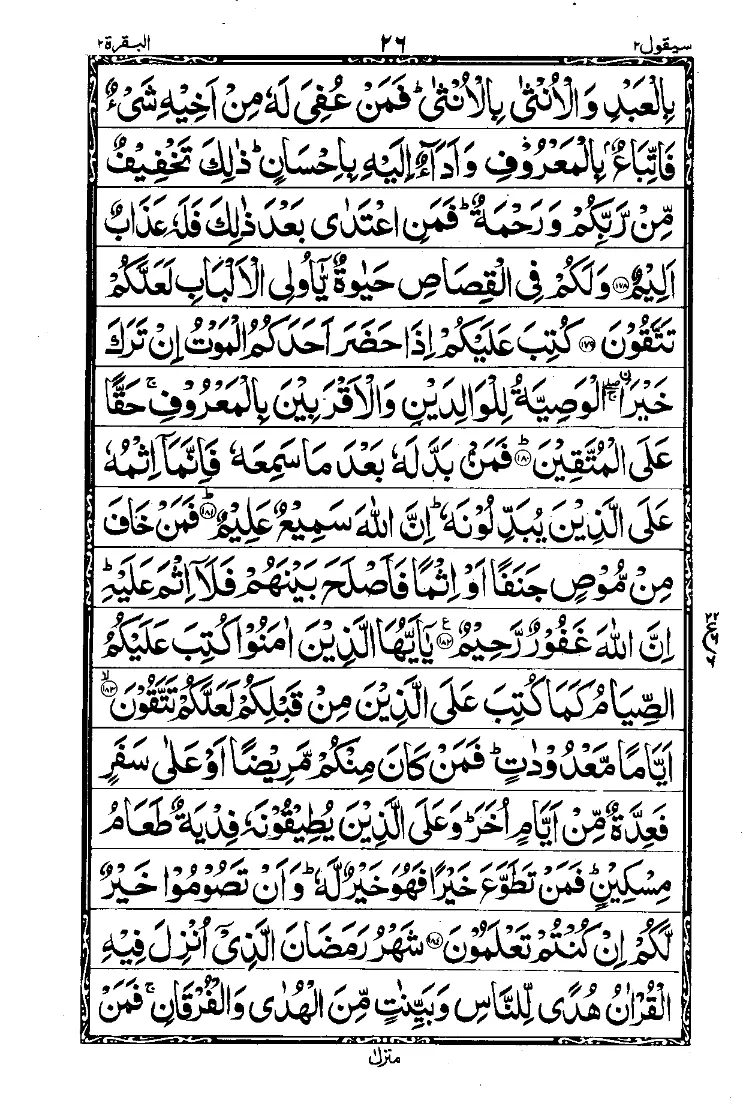 سيقول٢ ٢٦ البقرة٢
بِالْعَبْدِ وَالْاُنْثٰى بِالْاُنْثٰىؕ فَمَنْ عُفِىَ لَهٗ مِنْ اَخِيْهِ شَىْءٌ
فَاتِّبَاعٌۢ بِالْمَعْرُوْفِ وَاَدَآءٌ اِلَيْهِ بِاِحْسَانٍؕ ذٰلِكَ تَخْفِيْفٌ
مِّنْ رَّبِّكُمْ وَرَحْمَةٌؕ فَمَنِ اعْتَدٰى بَعْدَ ذٰلِكَ فَلَهٗ عَذَابٌ
اَلِيْمٌ ﴿١٧٨﴾ وَلَكُمْ فِى الْقِصَاصِ حَيٰوةٌ يّٰۤاُولِى الْاَلْبَابِ لَعَلَّكُمْ
تَتَّقُوْنَ ﴿١٧٩﴾ كُتِبَ عَلَيْكُمْ اِذَا حَضَرَ اَحَدَكُمُ الْمَوْتُ اِنْ تَرَكَ
خَيْرَا ۖۚ اۨلْوَصِيَّةُ لِلْوَالِدَيْنِ وَالْاَقْرَبِيْنَ بِالْمَعْرُوْفِۚ حَقًّا
عَلَى الْمُتَّقِيْنَؕ ﴿١٨٠﴾ فَمَنْۢ بَدَّلَهٗ بَعْدَ مَا سَمِعَهٗ فَاِنَّمَاۤ اِثْمُهٗ
عَلَى الَّذِيْنَ يُبَدِّلُوْنَهٗؕ اِنَّ اللّٰهَ سَمِيْعٌ عَلِيْمٌؕ ﴿١٨١﴾ فَمَنْ خَافَ
مِنْ مُّوْصٍ جَنَفًا اَوْ اِثْمًا فَاَصْلَحَ بَيْنَهُمْ فَلَاۤ اِثْمَ عَلَيْهِؕ
اِنَّ اللّٰهَ غَفُوْرٌ رَّحِيْمٌ ﴿١٨٢﴾ع يٰۤاَيُّهَا الَّذِيْنَ اٰمَنُوْا كُتِبَ عَلَيْكُمُ
الصِّيَامُ كَمَا كُتِبَ عَلَى الَّذِيْنَ مِنْ قَبْلِكُمْ لَعَلَّكُمْ تَتَّقُوْنَۙ ﴿١٨٣﴾
اَيَّامًا مَّعْدُوْدٰتٍؕ فَمَنْ كَانَ مِنْكُمْ مَّرِيْضًا اَوْ عَلٰى سَفَرٍ
فَعِدَّةٌ مِّنْ اَيَّامٍ اُخَرَؕ وَعَلَى الَّذِيْنَ يُطِيْقُوْنَهٗ فِدْيَةٌ طَعَامُ
مِسْكِيْنٍؕ فَمَنْ تَطَوَّعَ خَيْرًا فَهُوَ خَيْرٌ لَّهٗؕ وَاَنْ تَصُوْمُوْا خَيْرٌ
لَّكُمْ اِنْ كُنْتُمْ تَعْلَمُوْنَ ﴿١٨٤﴾ شَهْرُ رَمَضَانَ الَّذِىْۤ اُنْزِلَ فِيْهِ
الْقُرْاٰنُ هُدًى لِّلنَّاسِ وَبَيِّنٰتٍ مِّنَ الْهُدٰى وَالْفُرْقَانِۚ فَمَنْ
منزل